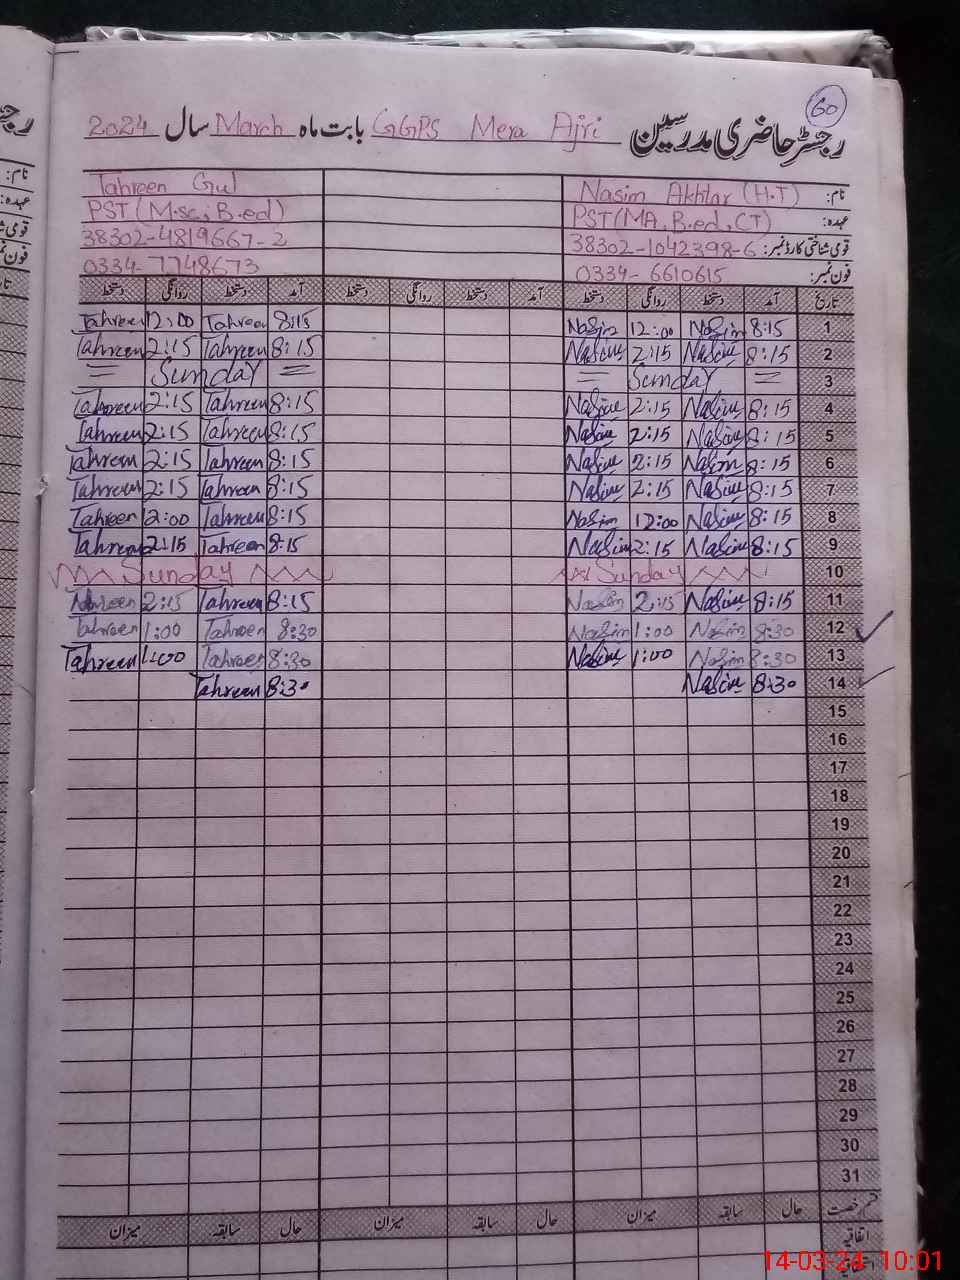 60
رجسٹر حاضری مدرسین GGPS Mera Ajri بابت ماہ March سال 2024
نام: Nasim Akhtar (H.T) Tahreen Gul
عہدہ: PST(MA, B.ed, CT) PST(M.sc, B.ed)
قومی شناختی کارڈ نمبر: 38302-1042398-6 38302-4819667-2
فون نمبر: 0334-6610615 0334-7748673
تاریخ آمد دستخط روانگی دستخط آمد دستخط روانگی دستخط آمد دستخط روانگی دستخط
1 8:15 Nasim 12:00 Nasim 8:15 Tahreen 12:00 Tahreen
2 8:15 Nasim 2:15 Nasim 8:15 Tahreen 2:15 Tahreen
3 = Sunday = = Sunday =
4 8:15 Nasim 2:15 Nasim 8:15 Tahreen 2:15 Tahreen
5 8:15 Nasim 2:15 Nasim 8:15 Tahreen 2:15 Tahreen
6 8:15 Nasim 2:15 Nasim 8:15 Tahreen 2:15 Tahreen
7 8:15 Nasim 2:15 Nasim 8:15 Tahreen 2:15 Tahreen
8 8:15 Nasim 12:00 Nasim 8:15 Tahreen 12:00 Tahreen
9 8:15 Nasim 2:15 Nasim 8:15 Tahreen 2:15 Tahreen
10 Sunday Sunday
11 8:15 Nasim 2:15 Nasim 8:15 Tahreen 2:15 Tahreen
12 8:30 Nasim 1:00 Nasim 8:30 Tahreen 1:00 Tahreen
13 8:30 Nasim 1:00 Nasim 8:30 Tahreen 1:00 Tahreen
14 8:30 Nasim 8:30 Tahreen
15
16
17
18
19
20
21
22
23
24
25
26
27
28
29
30
31
قسم رخصت حال سابقہ میزان حال سابقہ میزان حال سابقہ میزان
اتفاقیہ
14-03-24 10:01